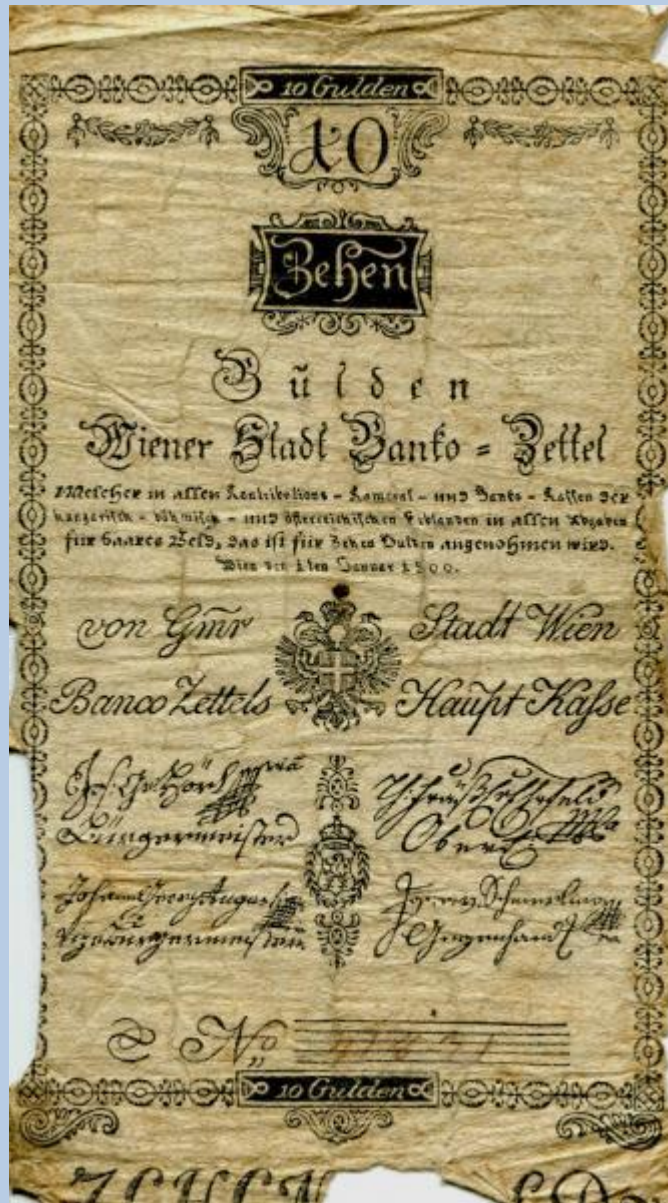 10 Gulden
10
Zehen
Gulden
Wiener Stadt Banko = Zettel
Welcher in allen Kontributions - Kameral - und Banko - Kassen der
hungarisch - böhmisch - und österreichischen Erblanden in allen Abgaben
für baares Geld, das ist für Zehen Gulden angenohmen wird.
Wien den 1ten Jänner 1800.
von Gmr Stadt Wien
Banco Zettels Haupt Kasse
Bürgermeister
Johann Georg
Vizebürgermeister
No
10 Gulden